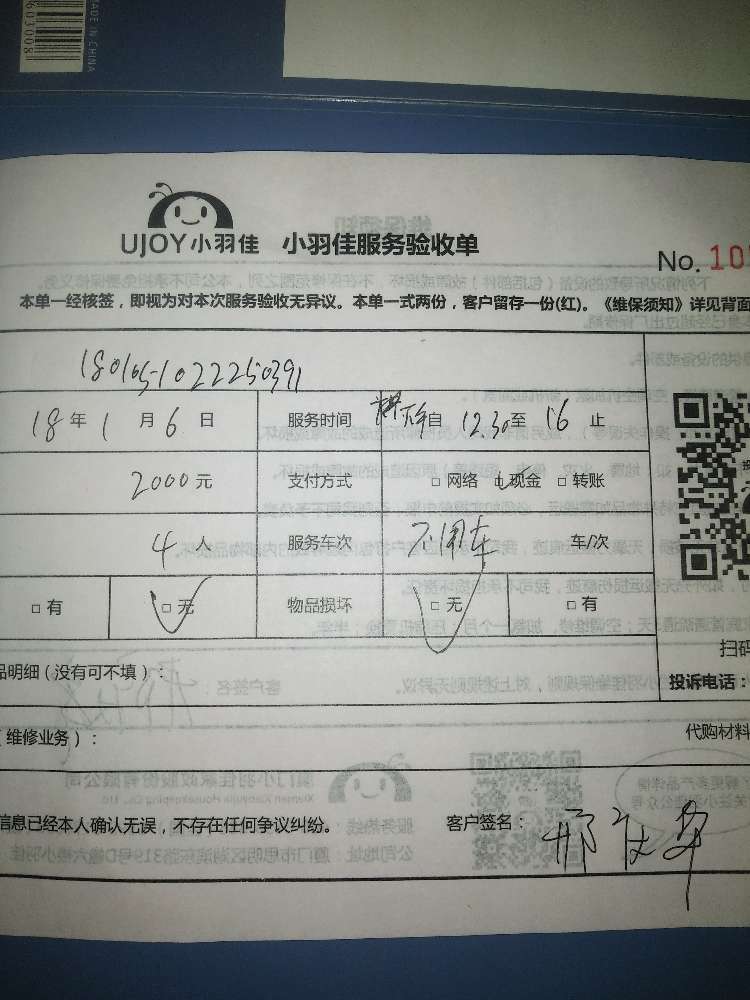 MADE IN CHINA
UJOY小羽佳 小羽佳服务验收单
No. 10
本单一经核签，即视为对本次服务验收无异议。本单一式两份，客户留存一份(红)。《维保须知》详见背面
180105-1022250391
18年1月6日 服务时间 自12.30至16止
2000元 支付方式 □网络 □现金 □转账
4人 服务车次 不用车 车/次
□有 □无 物品损坏 □无 □有
扫码
品明细（没有可不填）：
投诉电话：
（维修业务）： 代购材料
信息已经本人确认无误，不存在任何争议纠纷。 客户签名：